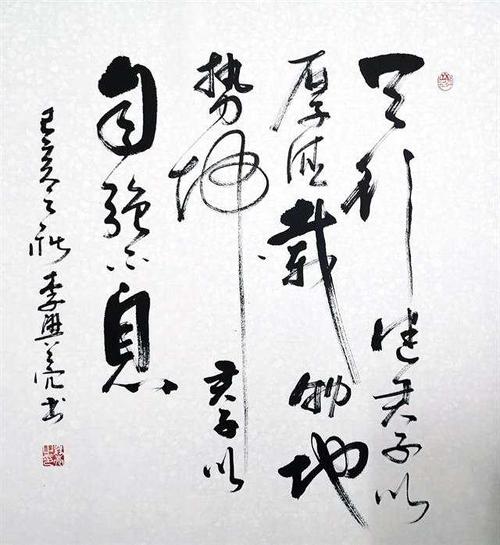 天行健君子以
厚德載物地
势坤君子以
自强不息
己亥之秋李興亮书